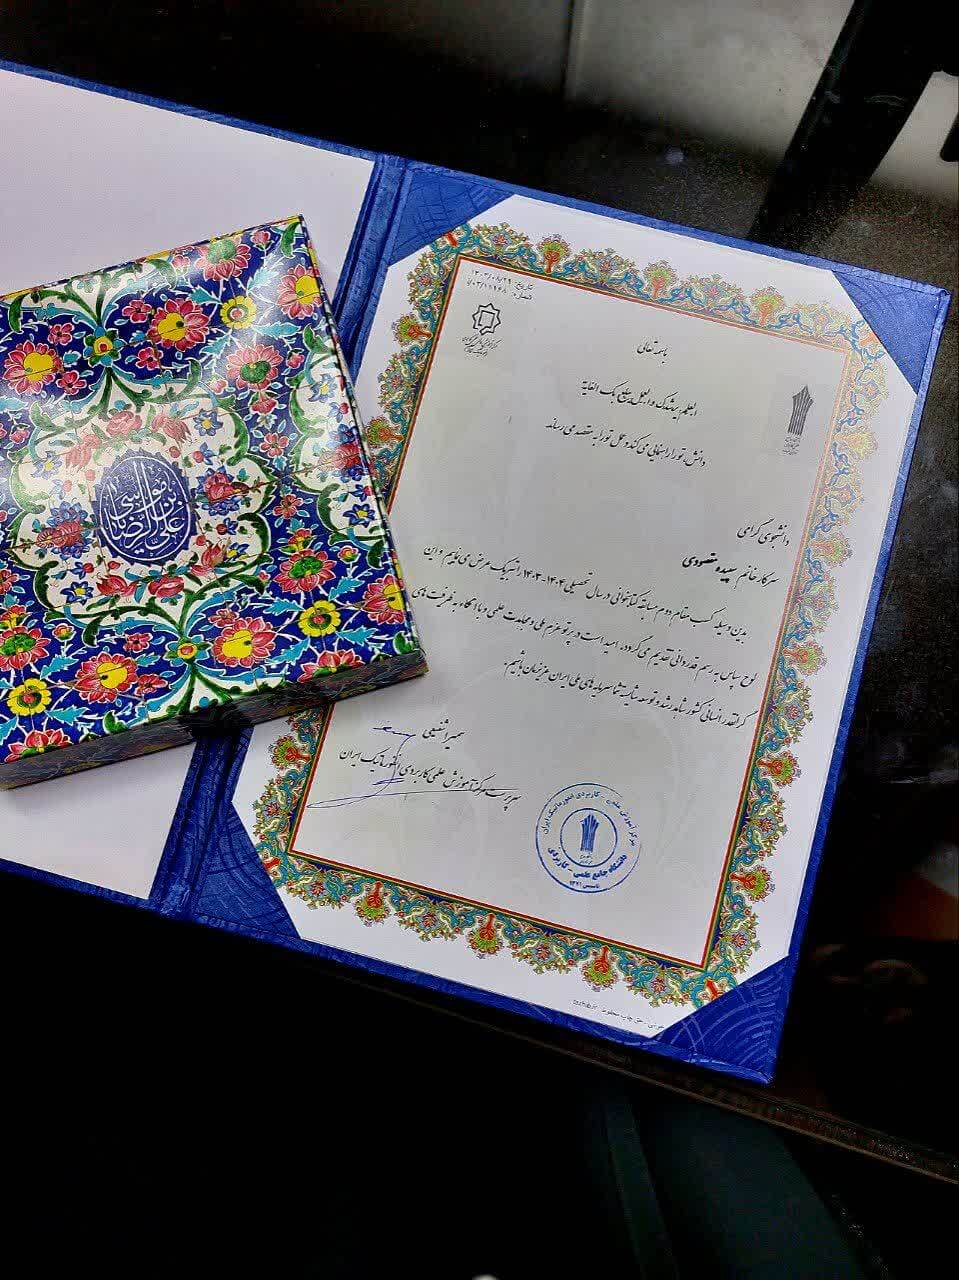 تاریخ: ۱۴۰۳/۰۸/۲۹
شماره:
باسمه تعالی
العلم یرشدک و العمل یبلغ بک الغایه
دانش، تو را راهنمایی می کند و عمل تو را به مقصد می رساند.
دانشجوی گرامی
سرکار خانم سپیده مقصودی
بدین وسیله کسب مقام دوم مسابقه کتابخوانی در سال تحصیلی ۱۴۰۴-۱۴۰۳ را تبریک عرض می نماییم و این
لوح سپاس به رسم قدردانی تقدیم می گردد. امید است در پرتو عزم ملی و مجاهدت علمی و با اتکاء به ظرفیت های
گرانقدر انسانی کشور شاهد رشد و توسعه شایسته شما سرمایه های ملی ایران عزیزمان باشیم.
سمیرا شفیعی
سرپرست مرکز آموزش علمی کاربردی انفورماتیک ایران
مرکز آموزش علمی - کاربردی انفورماتیک ایران
دانشگاه جامع علمی - کاربردی
تاسیس ۱۳۷۱
علی بن موسی الرضا
حق چاپ محفوظ